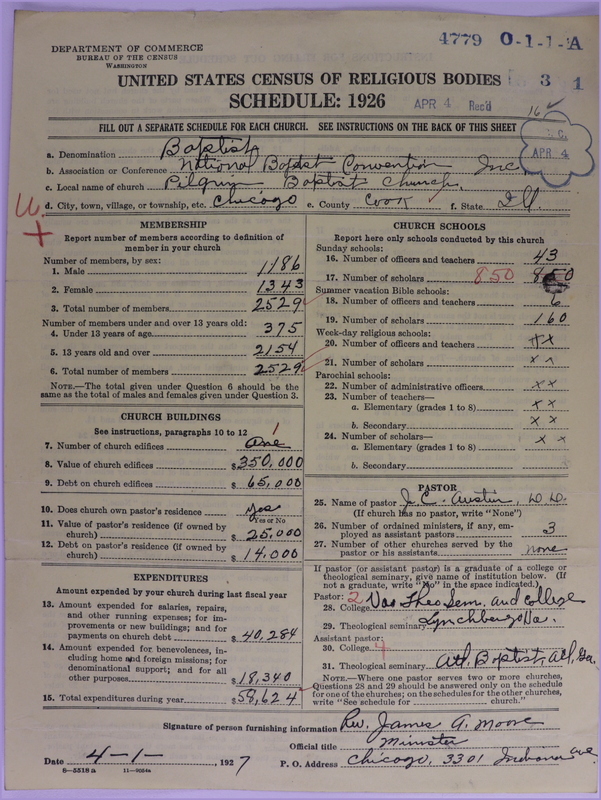 4779 0-1-1-A
DEPARTMENT OF COMMERCE
BUREAU OF THE CENSUS
WASHINGTON
UNITED STATES CENSUS OF RELIGIOUS BODIES 3 1
SCHEDULE: 1926 APR 4 Rec'd
16 ✓
FILL OUT A SEPARATE SCHEDULE FOR EACH CHURCH. SEE INSTRUCTIONS ON THE BACK OF THIS SHEET
APR 4
a. Denomination Baptist
b. Association or Conference National Baptist Convention Inc.
c. Local name of church Pilgrim Baptist Church
d. City, town, village, or township, etc. Chicago e. County Cook f. State Ill.
MEMBERSHIP
Report number of members according to definition of
member in your church
Number of members, by sex:
1. Male 1186
2. Female 1343
3. Total number of members 2529
Number of members under and over 13 years old:
4. Under 13 years of age 375
5. 13 years old and over 2154
6. Total number of members 2529
NOTE.—The total given under Question 6 should be
same as the total of males and females given under Question 3.
CHURCH BUILDINGS
See instructions, paragraphs 10 to 12
7. Number of church edifices one 1
8. Value of church edifices $350,000
9. Debt on church edifices $65,000
10. Does church own pastor's residence Yes
Yes or No
11. Value of pastor's residence (if owned by
church) $25,000
12. Debt on pastor's residence (if owned by
church) $14,000
EXPENDITURES
Amount expended by your church during last fiscal year
13. Amount expended for salaries, repairs,
and other running expenses; for im-
provements or new buildings; and for
payments on church debt $40,284
14. Amount expended for benevolences, in-
cluding home and foreign missions; for
denominational support; and for all
other purposes $18,340
15. Total expenditures during year $58,624
CHURCH SCHOOLS
Report here only schools conducted by this church
Sunday schools:
16. Number of officers and teachers 43
17. Number of scholars 850 850
Summer vacation Bible schools:
18. Number of officers and teachers 6
19. Number of scholars 160
Week-day religious schools:
20. Number of officers and teachers xx
21. Number of scholars xx
Parochial schools:
22. Number of administrative officers xx
23. Number of teachers—
a. Elementary (grades 1 to 8) xx
b. Secondary xx
24. Number of scholars— xx
a. Elementary (grades 1 to 8)
b. Secondary
PASTOR
25. Name of pastor J. C. Austin, D.D.
(If church has no pastor, write "None")
26. Number of ordained ministers, if any, em-
ployed as assistant pastors 3
27. Number of other churches served by the
pastor or his assistants none
If pastor (or assistant pastor) is a graduate of a college or
theological seminary, give name of institution below. (If
not a graduate, write "No" in the space indicated.)
Pastor: 2
28. College Vas Theo Sem. and College
29. Theological seminary Lynchburg Va.
Assistant pastor:
30. College
31. Theological seminary Atl. Baptist, Atl, Ga.
NOTE.—Where one pastor serves two or more churches,
Questions 28 and 29 should be answered only on the schedule
for one of the churches; on the schedules for the other churches,
write "See schedule for church."
Signature of person furnishing information Rev. James A. Moore
Official title Minister
Date 4-1-, 1927 P. O. Address Chicago, 3301 Indiana ave
8—5518 a 11—9034a